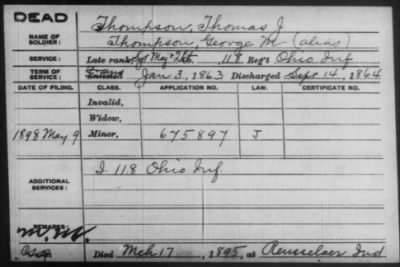 DEAD
NAME OF SOLDIER: Thompson, Thomas J
Thompson, George M (alias)
SERVICE: Late rank, Sgt Maj & 2 Lt, 118 Reg't Ohio Inf
TERM OF SERVICE: Jan 3, 1863 Discharged Sept 14, 1864
DATE OF FILING. CLASS. APPLICATION NO. LAW. CERTIFICATE NO.
Invalid,
Widow,
1898 May 9 Minor, 675897 J
ADDITIONAL SERVICES: I 118 Ohio Inf
REMARKS:
Died Mch 17, 1895, at Rensselaer Ind